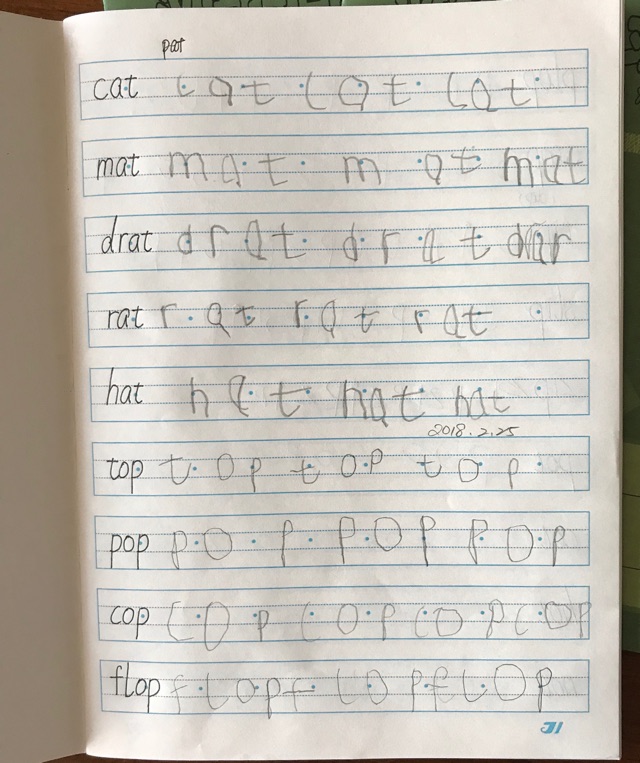 pat
cat cat cat cat
mat mat mat mat
drat drat drat drar
rat rat rat rat
hat hat hat hat
2018.2.25
top top top top
pop pop pop pop
cop cop cop cop cop
flop flop flop flop
31